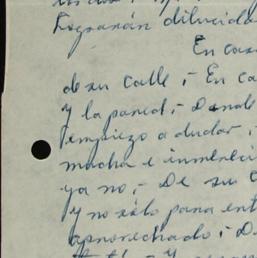 Lograrán dilucida
En cas
de su calle, - En ca
y la pared, - Donde
empiezo a dudar,
mucha e inmereci
ya no, - De su
y no sólo para ent
aprovechado, - D